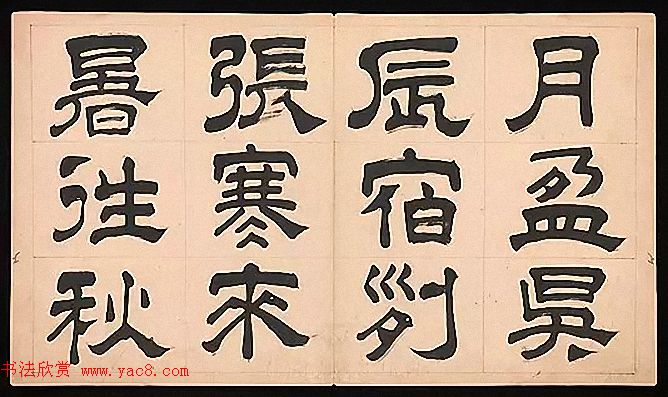 月盈昃
辰宿列
張寒來
暑徃秋
书法欣赏 www.yac8.com